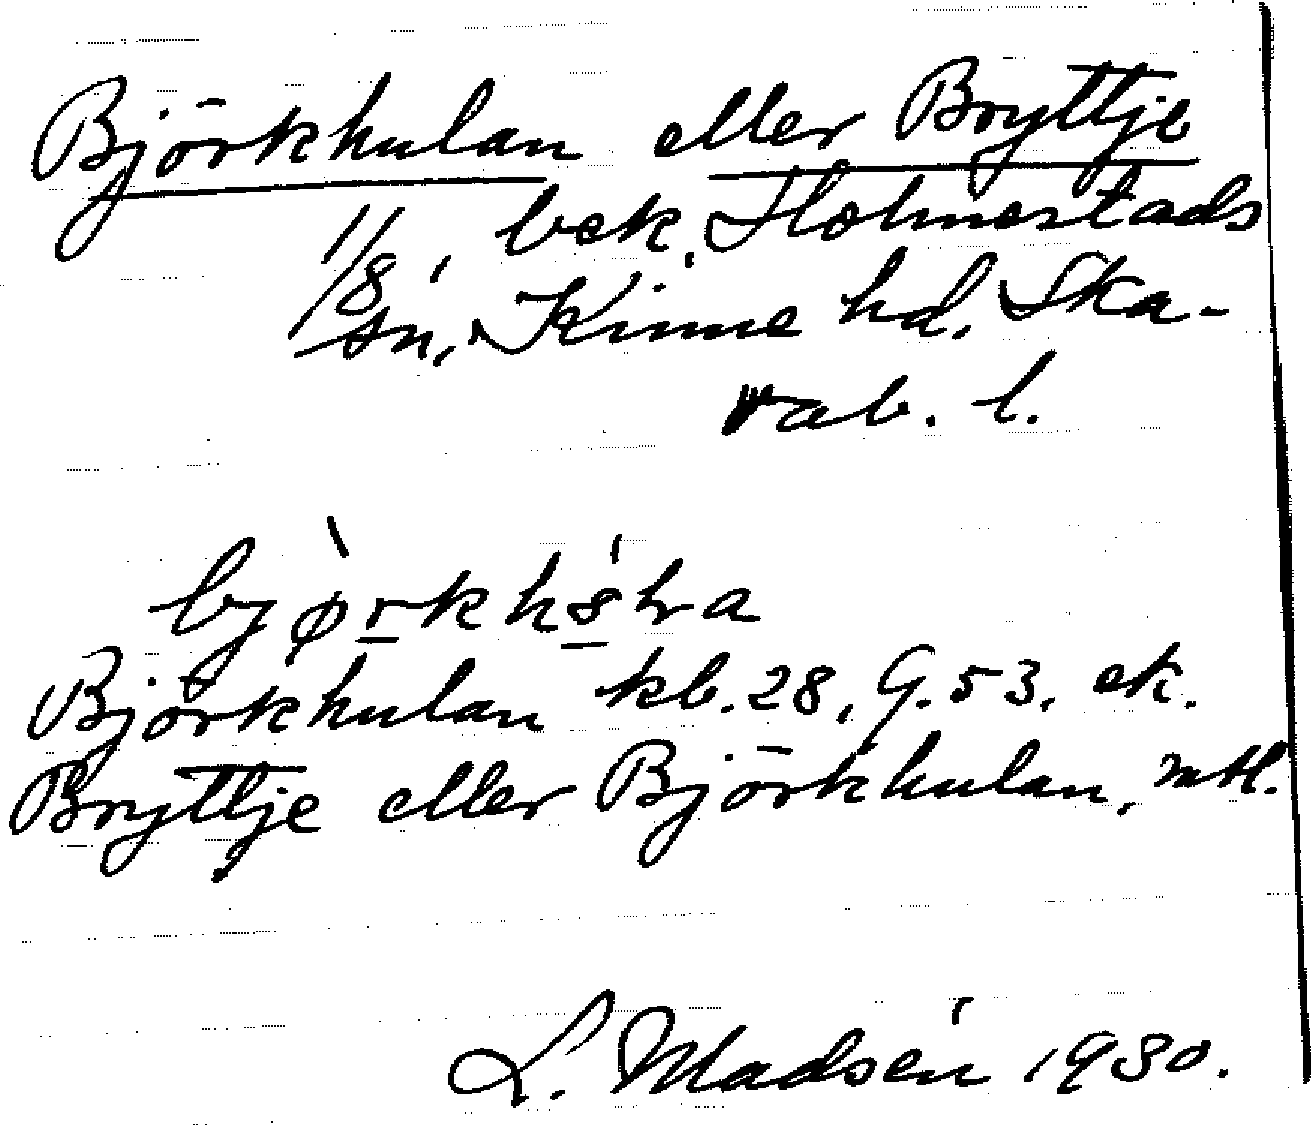 Björkhulan eller Bryttje
1/8, bek. Holmestads
sn., Kinne hd. Ska-
rab. l.
Björkhulan kb. 28, G. 53. ek.
Bryttje eller Björkhulan, mtl.
L. Madsén 1930.